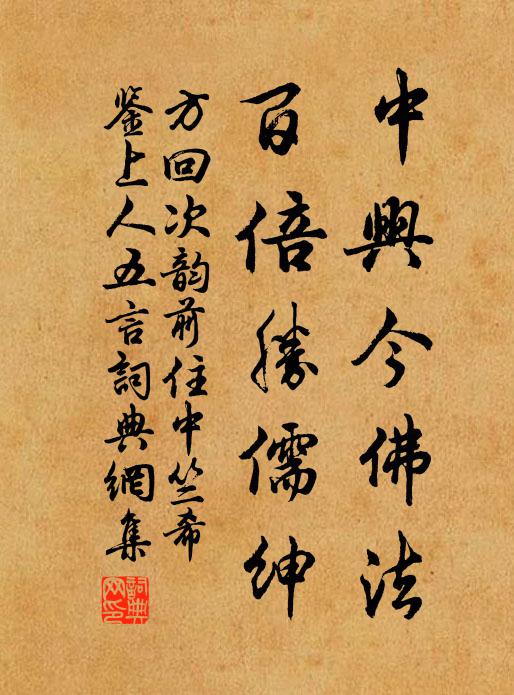 中興今佛法
百倍勝儒紳
方回次韵前住中竺希
鉴上人五言詞典網集
詞典网印